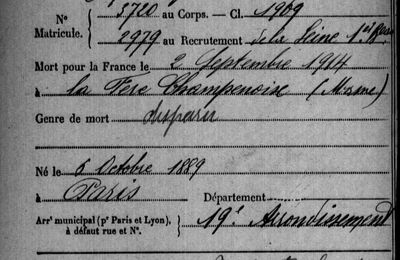 Nº
Matricule.
3720 au Corps. — Cl. 1909
2979 au Recrutement de la Seine 1er Bau
Mort pour la France le 2 Septembre 1914
à la Fère Champenoise (Marne)
Genre de mort disparu
Né le 6 Octobre 1889
à Paris Département
Arrt municipal (pr Paris et Lyon),
à défaut rue et Nº.
19e Arrondissement